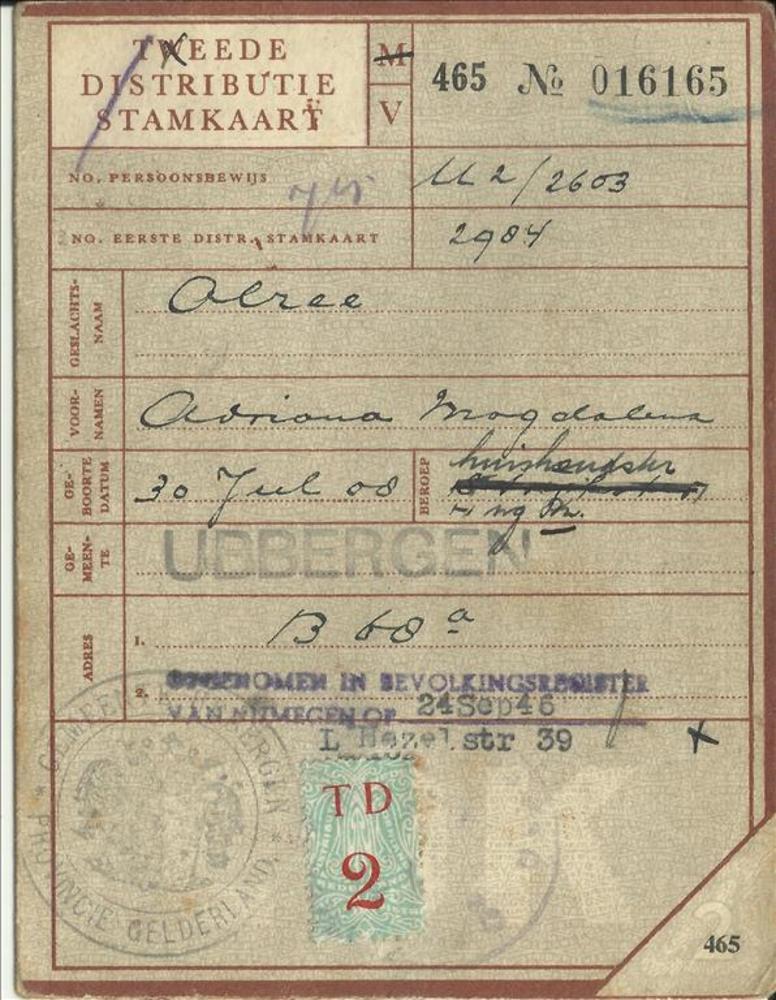 TWEEDE
DISTRIBUTIE
STAMKAART
M
V
465 No 016165
NO. PERSOONSBEWIJS
U 2/2603
NO. EERSTE DISTR. STAMKAART
2984
GESLACHTS-
NAAM
VOOR-
NAMEN
Adriana Magdalena
GE-
BOORTE
DATUM
30 Jul 08
BEROEP
huishoudster
GE-
MEEN-
TE
UBBERGEN
ADRES
1.
B 68 a
2.
OPGENOMEN IN BEVOLKINGSREGISTER
VAN NIJMEGEN OP 24 Sep 46
L Hezel str 39
GEMEENTE UBBERGEN
PROVINCIE GELDERLAND
TD
2
465